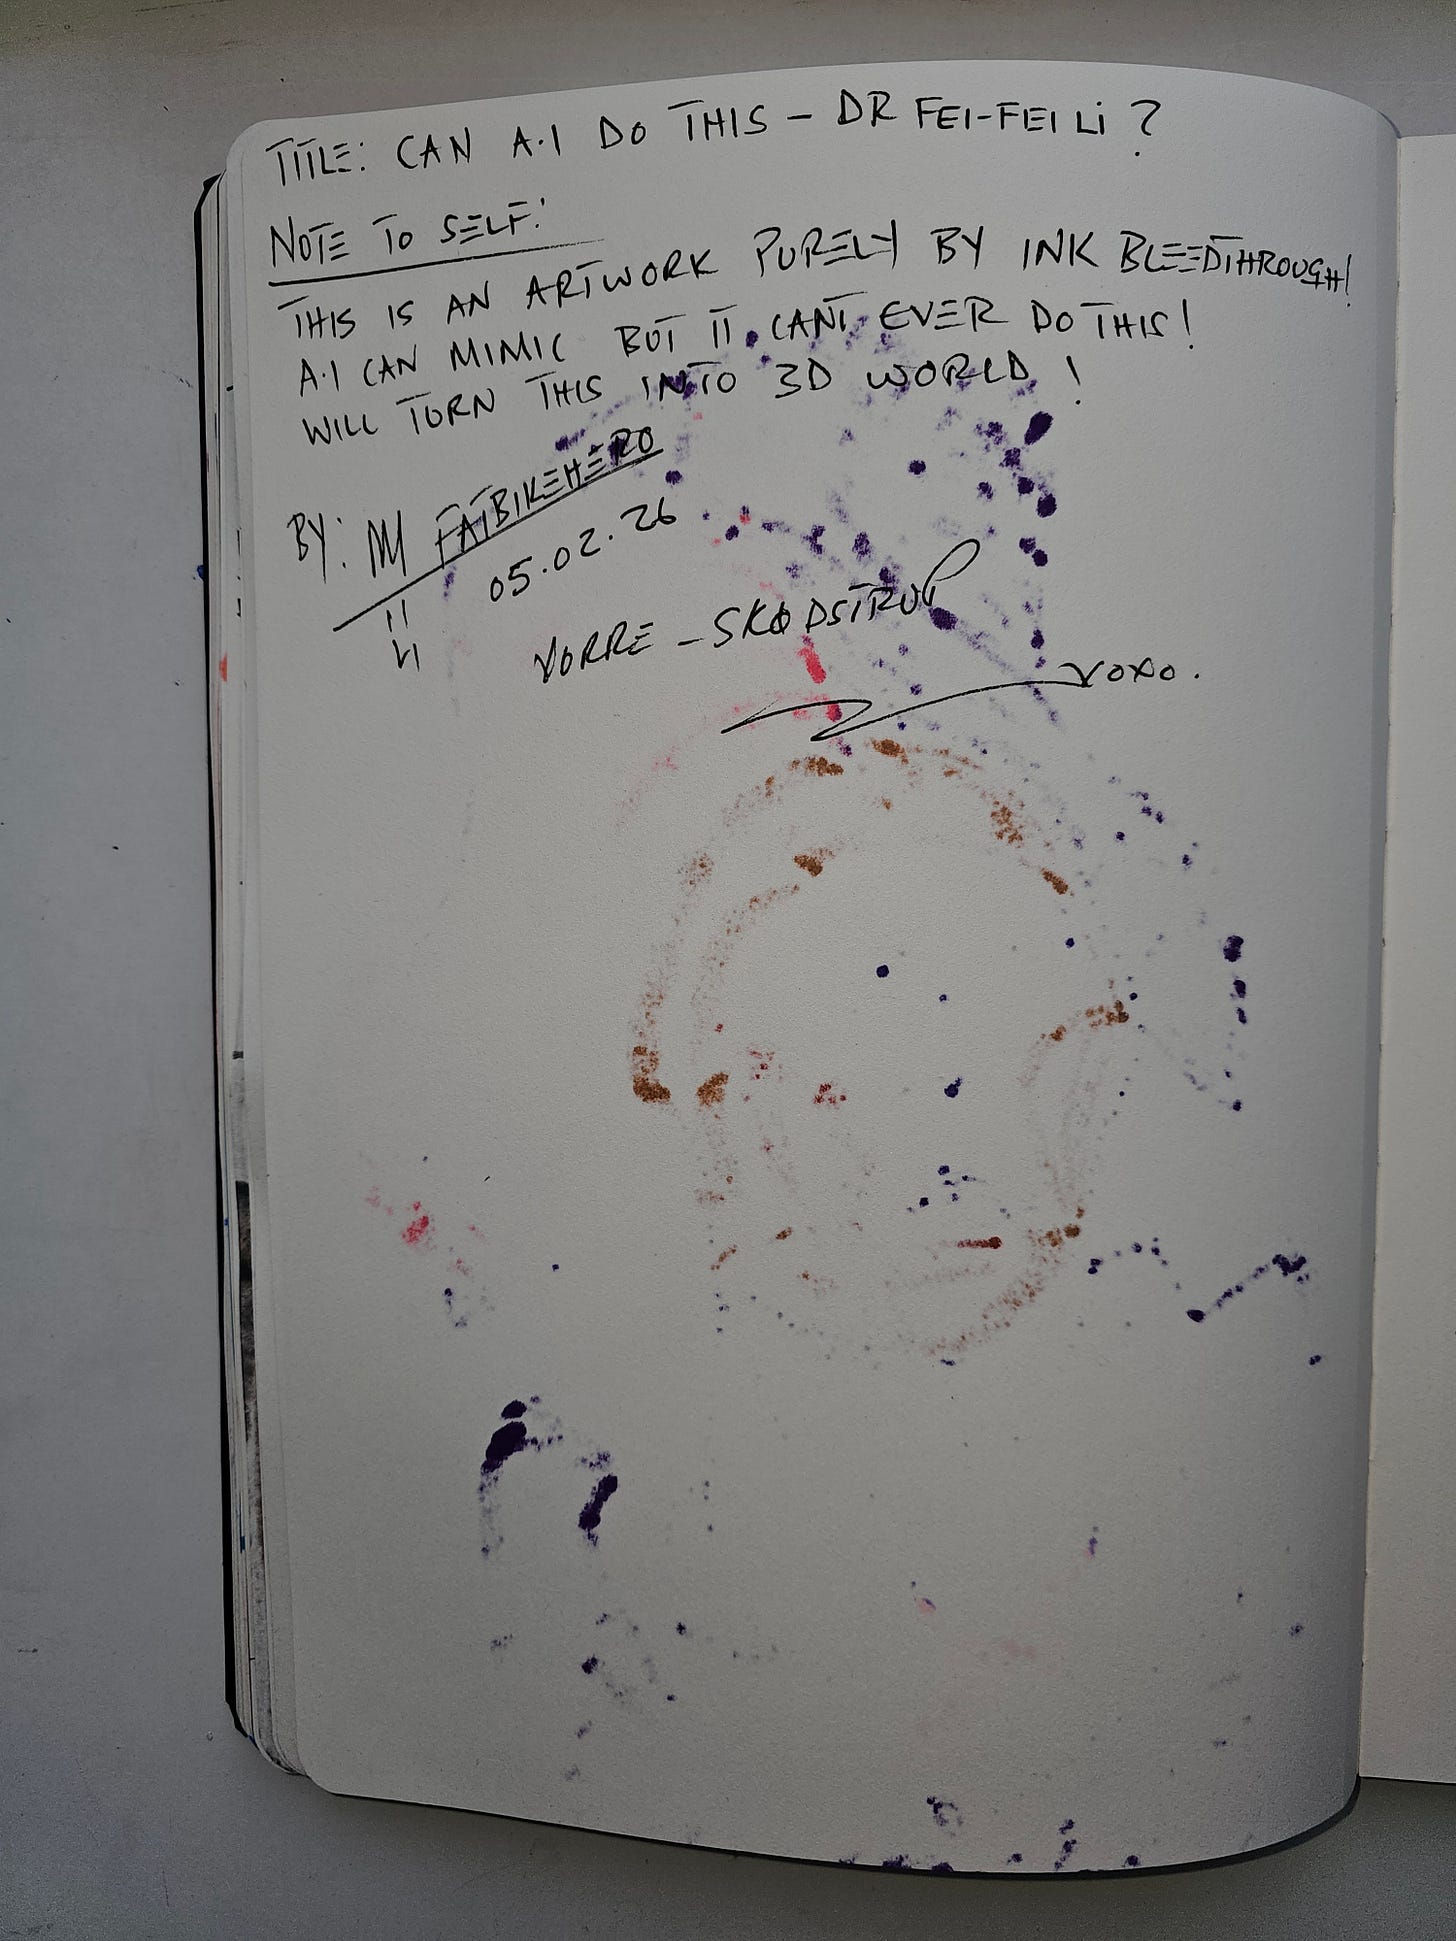 TITLE: CAN A.I DO THIS – DR FEI-FEI Li ?
NOTE TO SELF:
THIS IS AN ARTWORK PURELY BY INK BLEEDTHROUGH!
A.I CAN MIMIC BUT IT CANT EVER DO THIS!
WILL TURN THIS INTO 3D WORLD !
BY: FATBIKEHERO
05.02.26
VORRE – SKØDSTRUP
XOXO.